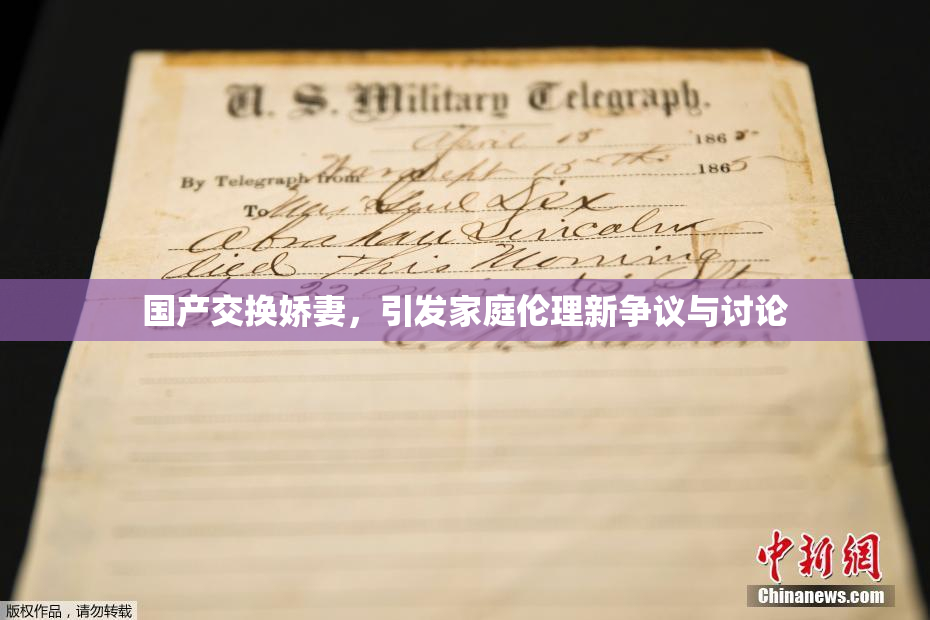 U. S. Military Telegraph.
April 15 1865
By Telegraph from War Dept 15th 1865
To Maj Genl Dix
Abraham Lincoln
died This Morning
22 minutes after
国产交换娇妻，引发家庭伦理新争议与讨论
E. M. Stanton
中新网
Chinanews.com
版权作品，请勿转载